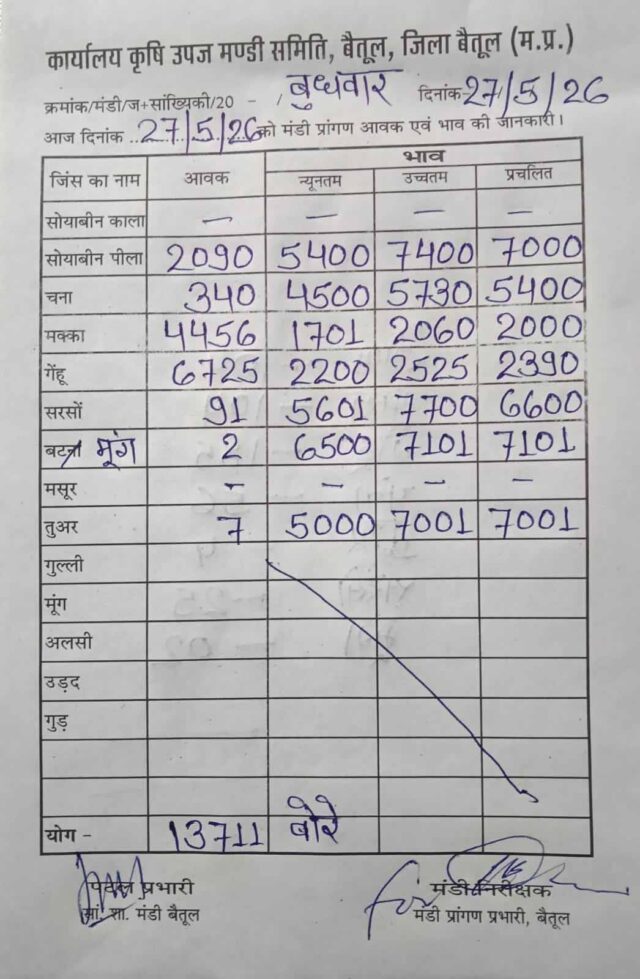 कार्यालय कृषि उपज मण्डी समिति, बैतूल, जिला बैतूल (म.प्र.)
क्रमांक/मंडी/ज+सांख्यिकी/20 - / बुधवार दिनांक 27/5/26
आज दिनांक ..27/5/26 को मंडी प्रांगण आवक एवं भाव की जानकारी।
भाव
जिंस का नाम आवक न्यूनतम उच्चतम प्रचलित
सोयाबीन काला — — — —
सोयाबीन पीला 2090 5400 7400 7000
चना 340 4500 5730 5400
मक्का 4456 1701 2060 2000
गेंहू 6725 2200 2525 2390
सरसों 91 5601 7700 6600
बटरा मूंग 2 6500 7101 7101
मसूर - - - -
तुअर 7 5000 7001 7001
गुल्ली
मूंग
अलसी
उड़द
गुड़
योग - 13711 बोरे
प्रभारी मंडी निरीक्षक
सां. शा. मंडी बैतूल for मंडी प्रांगण प्रभारी, बैतूल